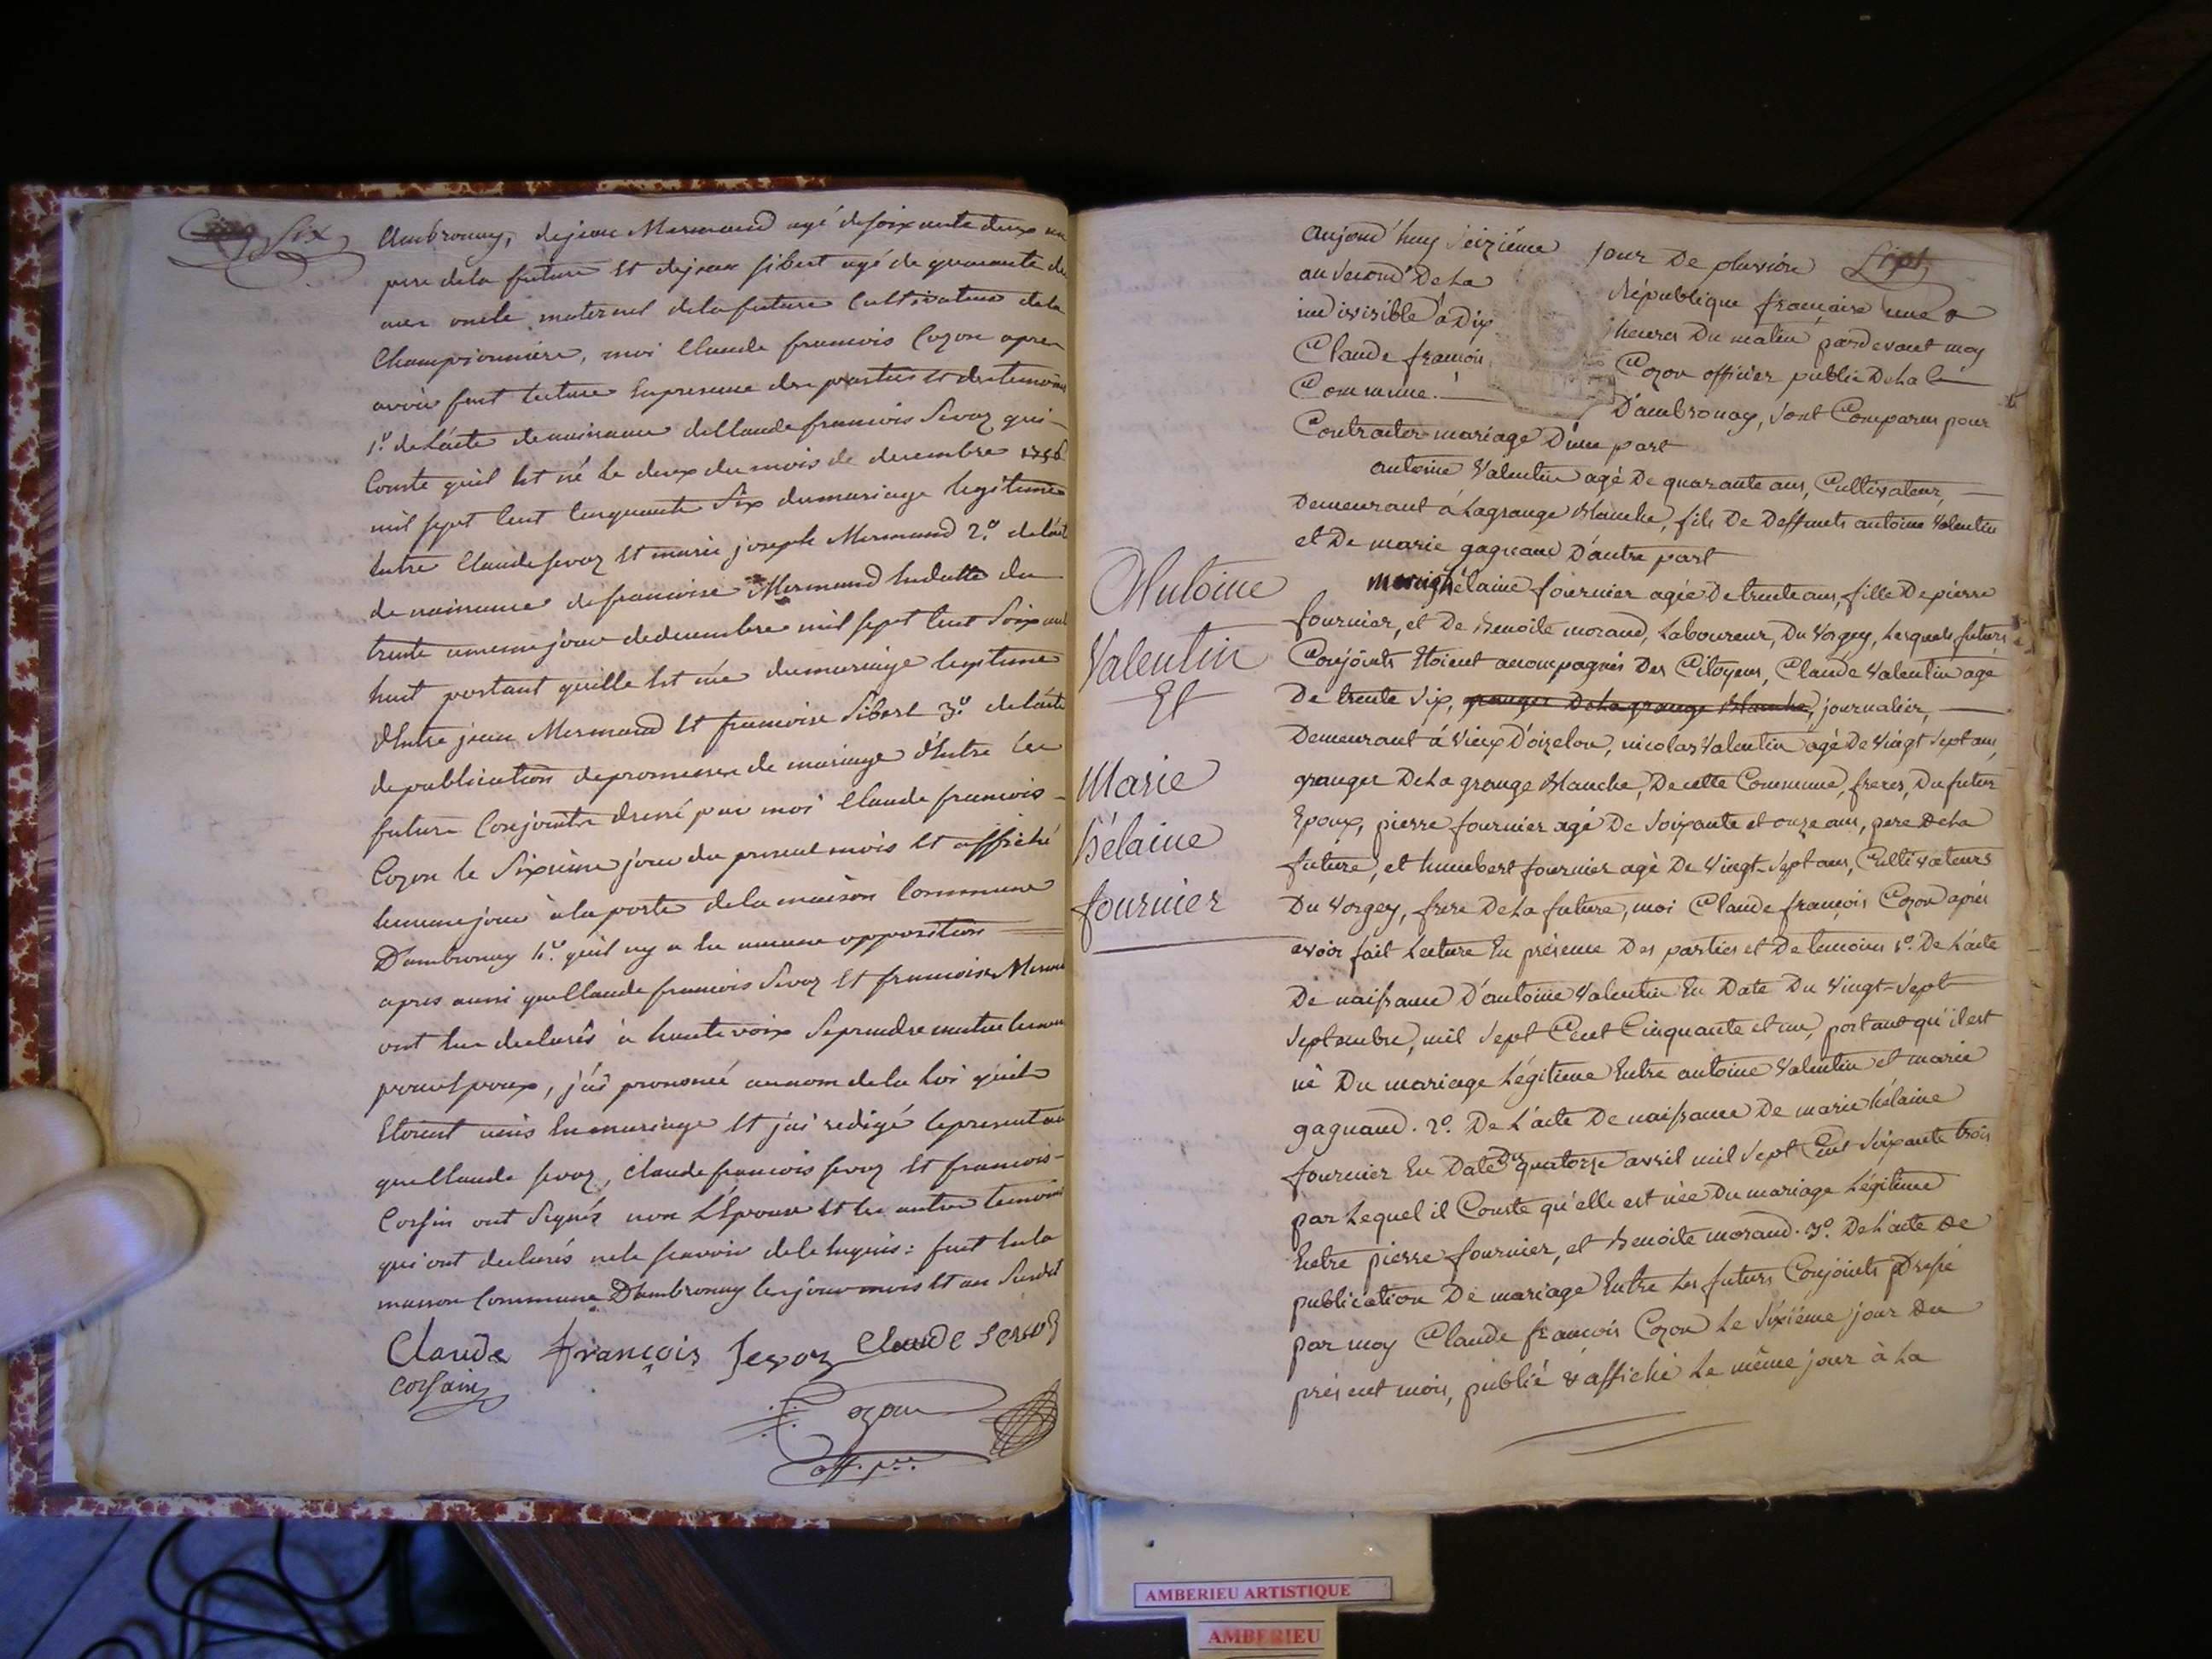 Six
Ambronay, de jean Mermand agé de soixante deux an
pere de la future et de jean sibert agé de quarante de
oncle maternel de la future Cultivateur de la
Championniére, moi Claude francois Cozon apres
avoir fait lecture En presence des parties et des temoins
1º. de L'acte de naissance de Claude francois Sevoz qui
Conste qu'il est né le deux du mois de decembre 1756
mil sept Cent Cinquante Six du mariage legitime
Entre Claude sevoz et marie josephe Mermand 2º. de l'act
de naissance de francoise Mermand En datte du
trente unieme jour de decembre mil sept Cent Soixant
huit portant qu'elle est née du mariage legitime
d'Entre jean Mermand et francoise Sibert 3º. de l'acte
de publication de promesse de mariage d'Entre les
futurs Conjoints dressé par moi Claude francois
Cozon le Sixieme jour du present mois et affiché
le meme jour à la porte de la maison Commune
D'ambronay 4º. qu'il n'y a Eu aucune opposition
apres aussi que Claude francois Sevoz et francoise Merm
ont Eu declarés à haute voix Se prendre mutuellement
pour Epoux, j'ai prononcé au nom de la Loi qu'ils
Etoient unis En mariage et j'ai redigé le present act
que Claude sevoz, Claude francois sevoz et francois
Corsin ont Signés non L'Epouse et les autres temoins
qui ont declarés ne le scavoir de ce Enquis: fait En la
maison Commune D'ambronay les jour mois et an Susdit
Claude françois Sevoz Claude Sevoz
corsain
Cozon
off. p.
Sept
aujourd'huy Seiziéme jour De pluviôse
an Second De La République française une &
indivisible à Dix heures Du matin pardevant moy
Claude françois Cozon officier public De La
Commune D'ambronay, Sont Comparus pour
Contracter mariage D'une part
antoine Valentin agé De quarante ans, Cultivateur,
Demeurant à Lagrange Blanche, fils De Deffunts antoine Valentin
et De marie gagnand D'autre part
Marie hélaine fournier agée De trente ans, fille De pierre
fournier, et De Benoite morand, Laboureur, Du Vorgey, Lesquels futurs
Conjoints Etoient accompagnés Des Citoyens, Claude Valentin agé
De trente Six, granger De La grange Blanche, journalier,
Demeurant à Vieux D'oizelon, nicolas Valentin agé De Vingt Sept ans,
granger De La grange Blanche, De cette Commune, freres, Du futur
Epoux, pierre fournier agé De Soixante et onze ans, pere De La
future, et humbert fournier agé De Vingt-Sept ans, Cultivateurs
Du Vorgey, frere De La future, moi Claude françois Cozon après
avoir fait Lecture En présence Des parties et De temoins 1º. De L'acte
De naissance D'antoine Valentin En Date Du Vingt-Sept
Septembre, mil Sept Cent Cinquante et un, portant qu'il est
né Du mariage Légitime Entre antoine Valentin et marie
gagnand. 2º. De L'acte De naissance De marie hélaine
fournier En Date Du quatorze avril mil Sept Cent Soixante trois
par Lequel il Conste qu'elle est née Du mariage Légitime
Entre pierre fournier, et Benoite morand. 3º. De L'acte De
publication De mariage Entre Les futurs Conjoints Dressé
par moy Claude françois Cozon Le Sixiéme jour Du
présent mois, publié & affiché Le même jour à La
Antoine
Valentin
Et
Marie
hélaine
fournier
AMBERIEU ARTISTIQUE
AMBERIEU